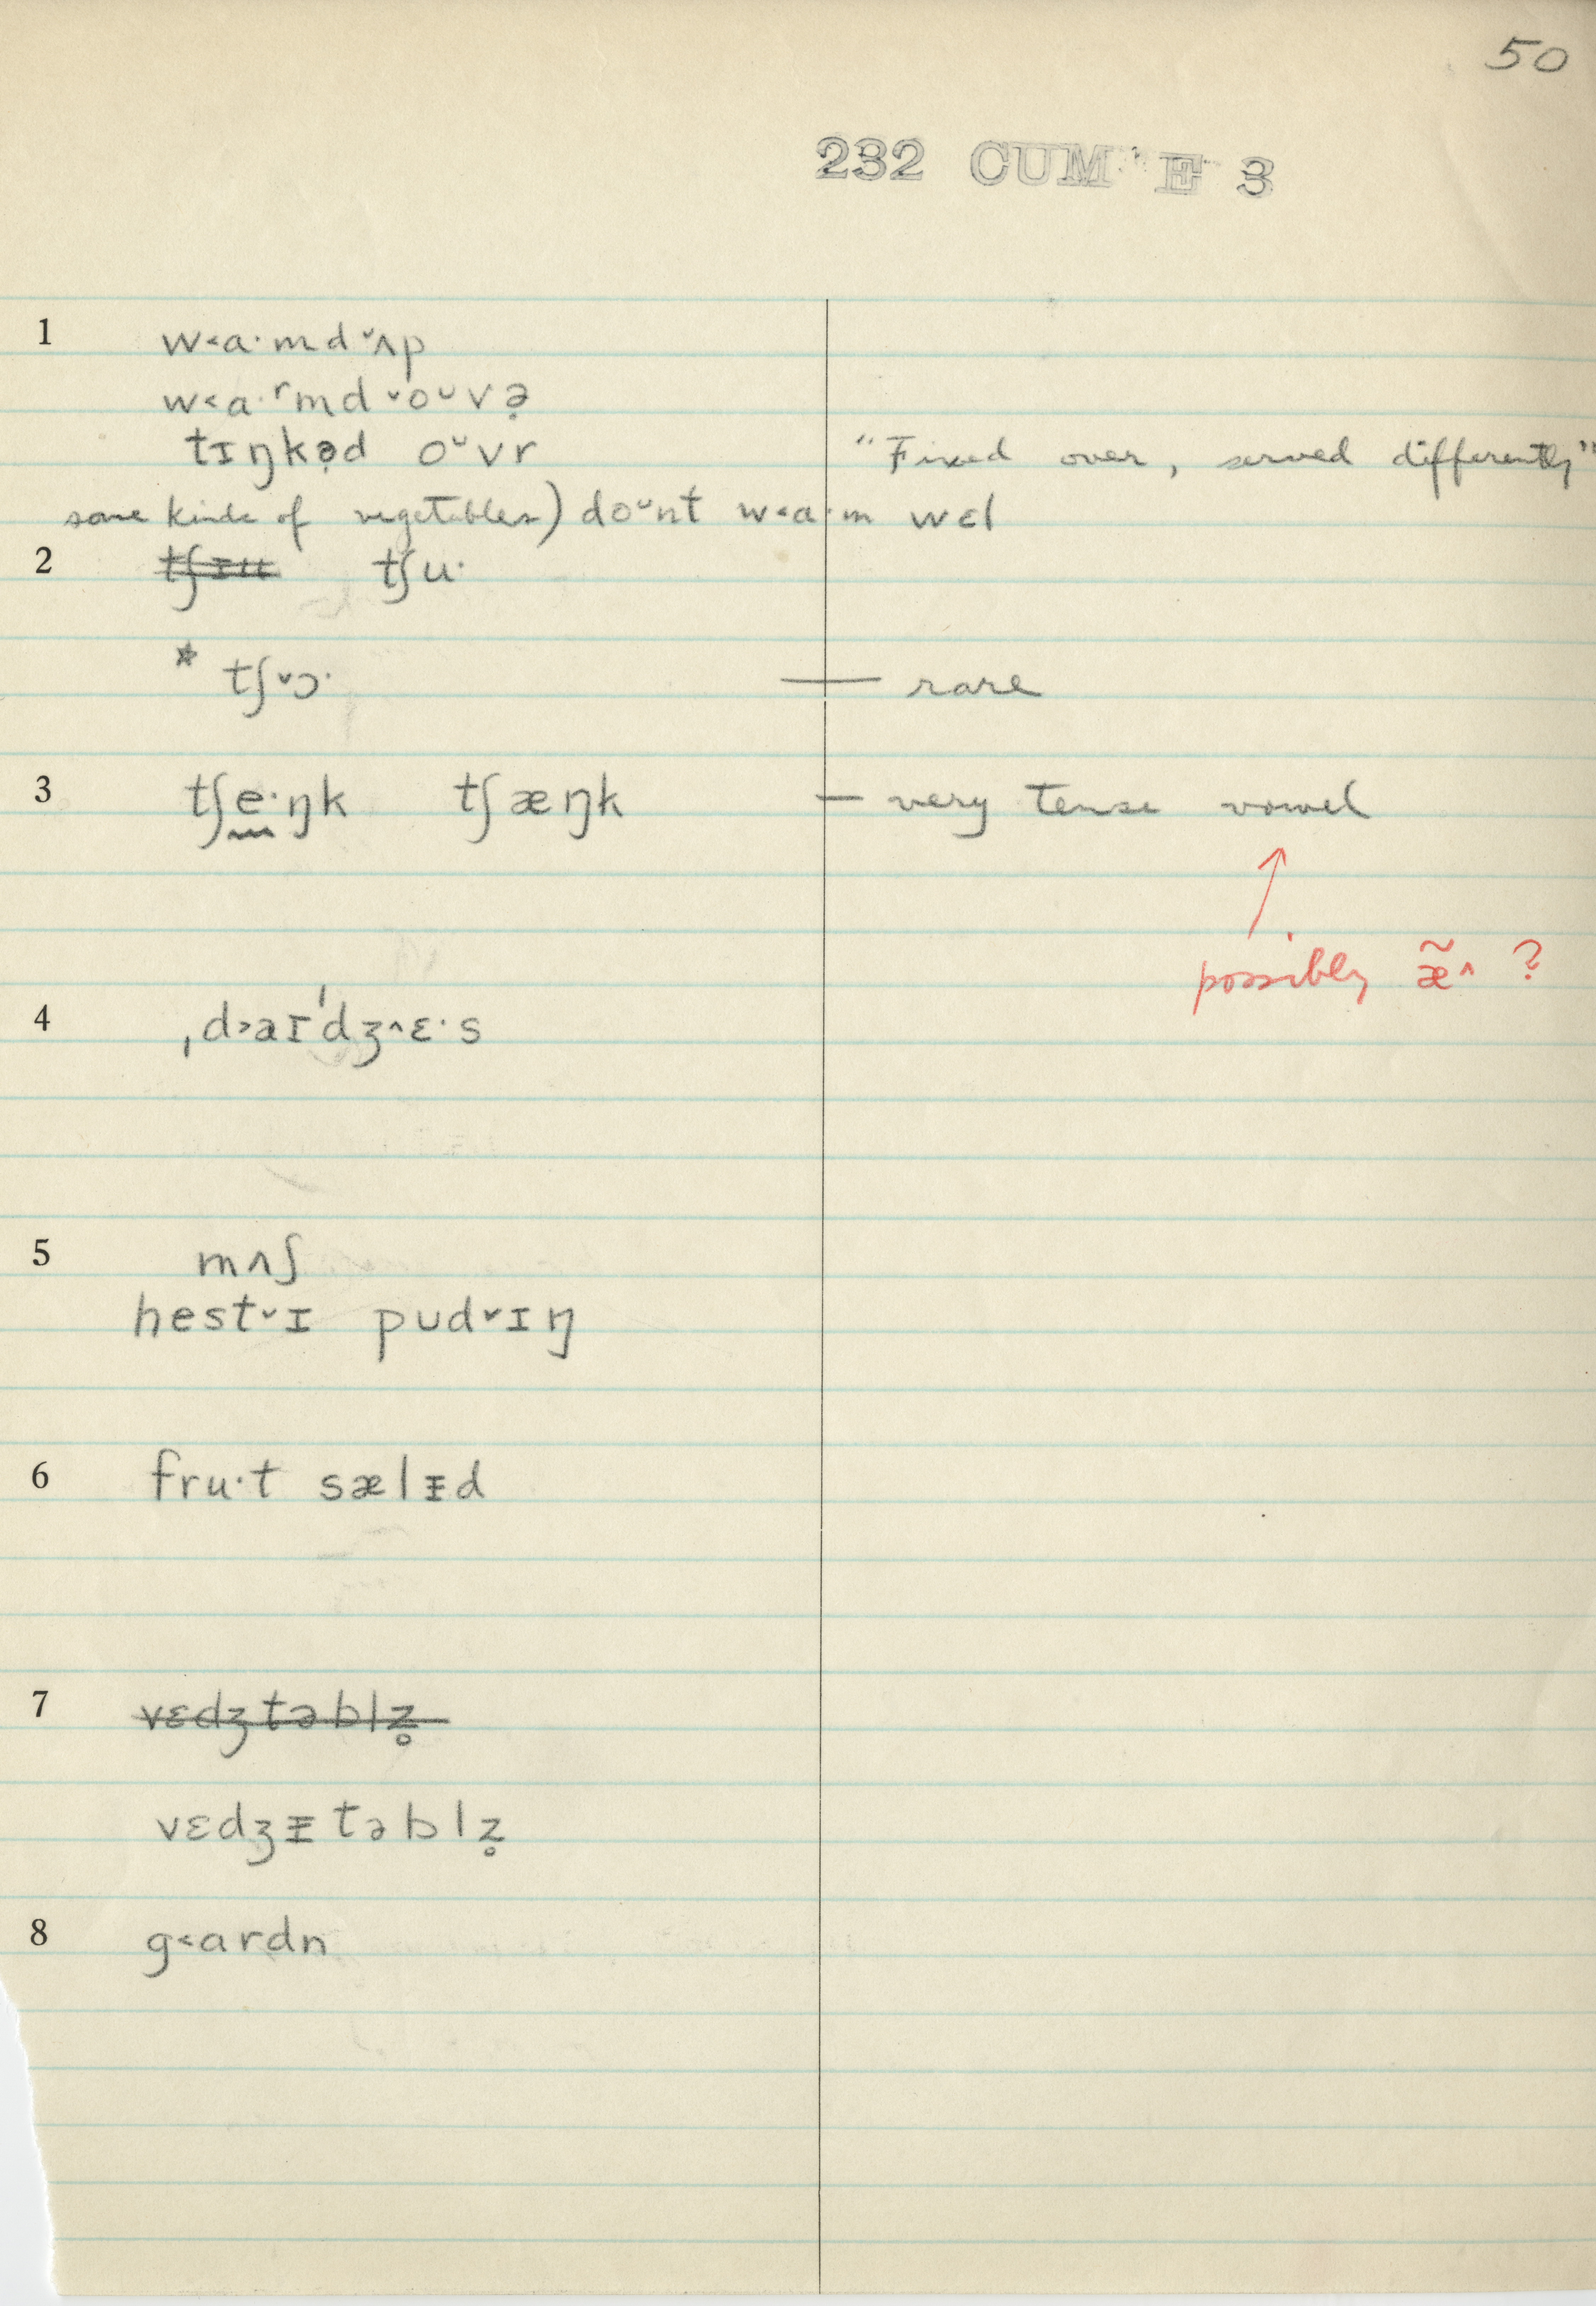 50
232 CUM E 3
1 w˂a·md ˅ʌp
w˂a·ʳmd ˅oᵕvə̣
tɪŋkə̣d oᵕvr "Fixed over, served differently"
some kinds of vegetables) doᵕnt w˂a·m wɛl
2 t̶ʃ̶ɪ̶u̶ tʃu·
* tʃ˅ɔ· — rare
3 tʃe·ŋk tʃæŋk — very tense vowel
↑
possibly æ̃^ ?
4 ˌd˃aɪˈdʒ^ɛ·s
5 mʌʃ
hest˅ɪ pud˅ɪŋ
6 fru·t sælᵻd
7 v̶ɛ̶d̶ʒ̶t̶ə̶b̶l̶z̶̥
vɛdʒᵻtəblz̥
8 g˂ardn